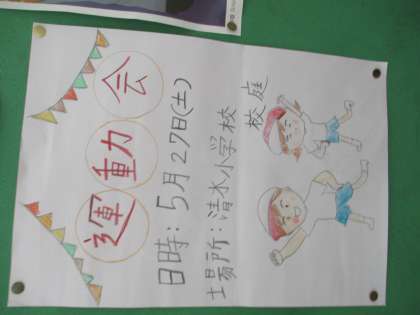 運動会
日時:5月27日(土)
場所:清水小学校
校庭